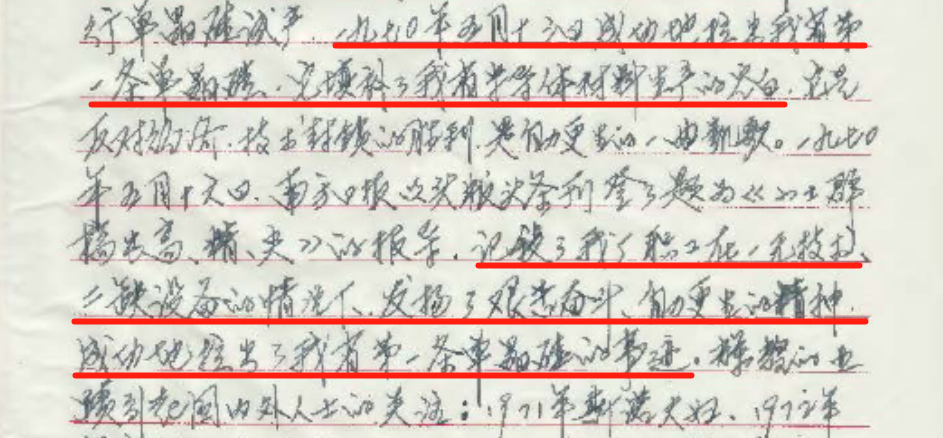 行单晶硅试产。一九七〇年五月十六日成功地拉出我省第
一条单晶硅。它填补了我省半导体材料生产的空白,它是
反对经济、技术封锁的胜利,是自力更生的一曲凯歌。一九七〇
年五月十六日,南方日报以头版头条刊登了题为《小土群
搞出高、精、尖》的报导,记载了我厂职工在一无技术、
二缺设备的情况下,发扬了艰苦奋斗、自力更生的精神,
成功地拉出了我省第一条单晶硅的事迹。辉煌的业
绩引起国内外人士的关注:1971年斯诺夫妇、1972年